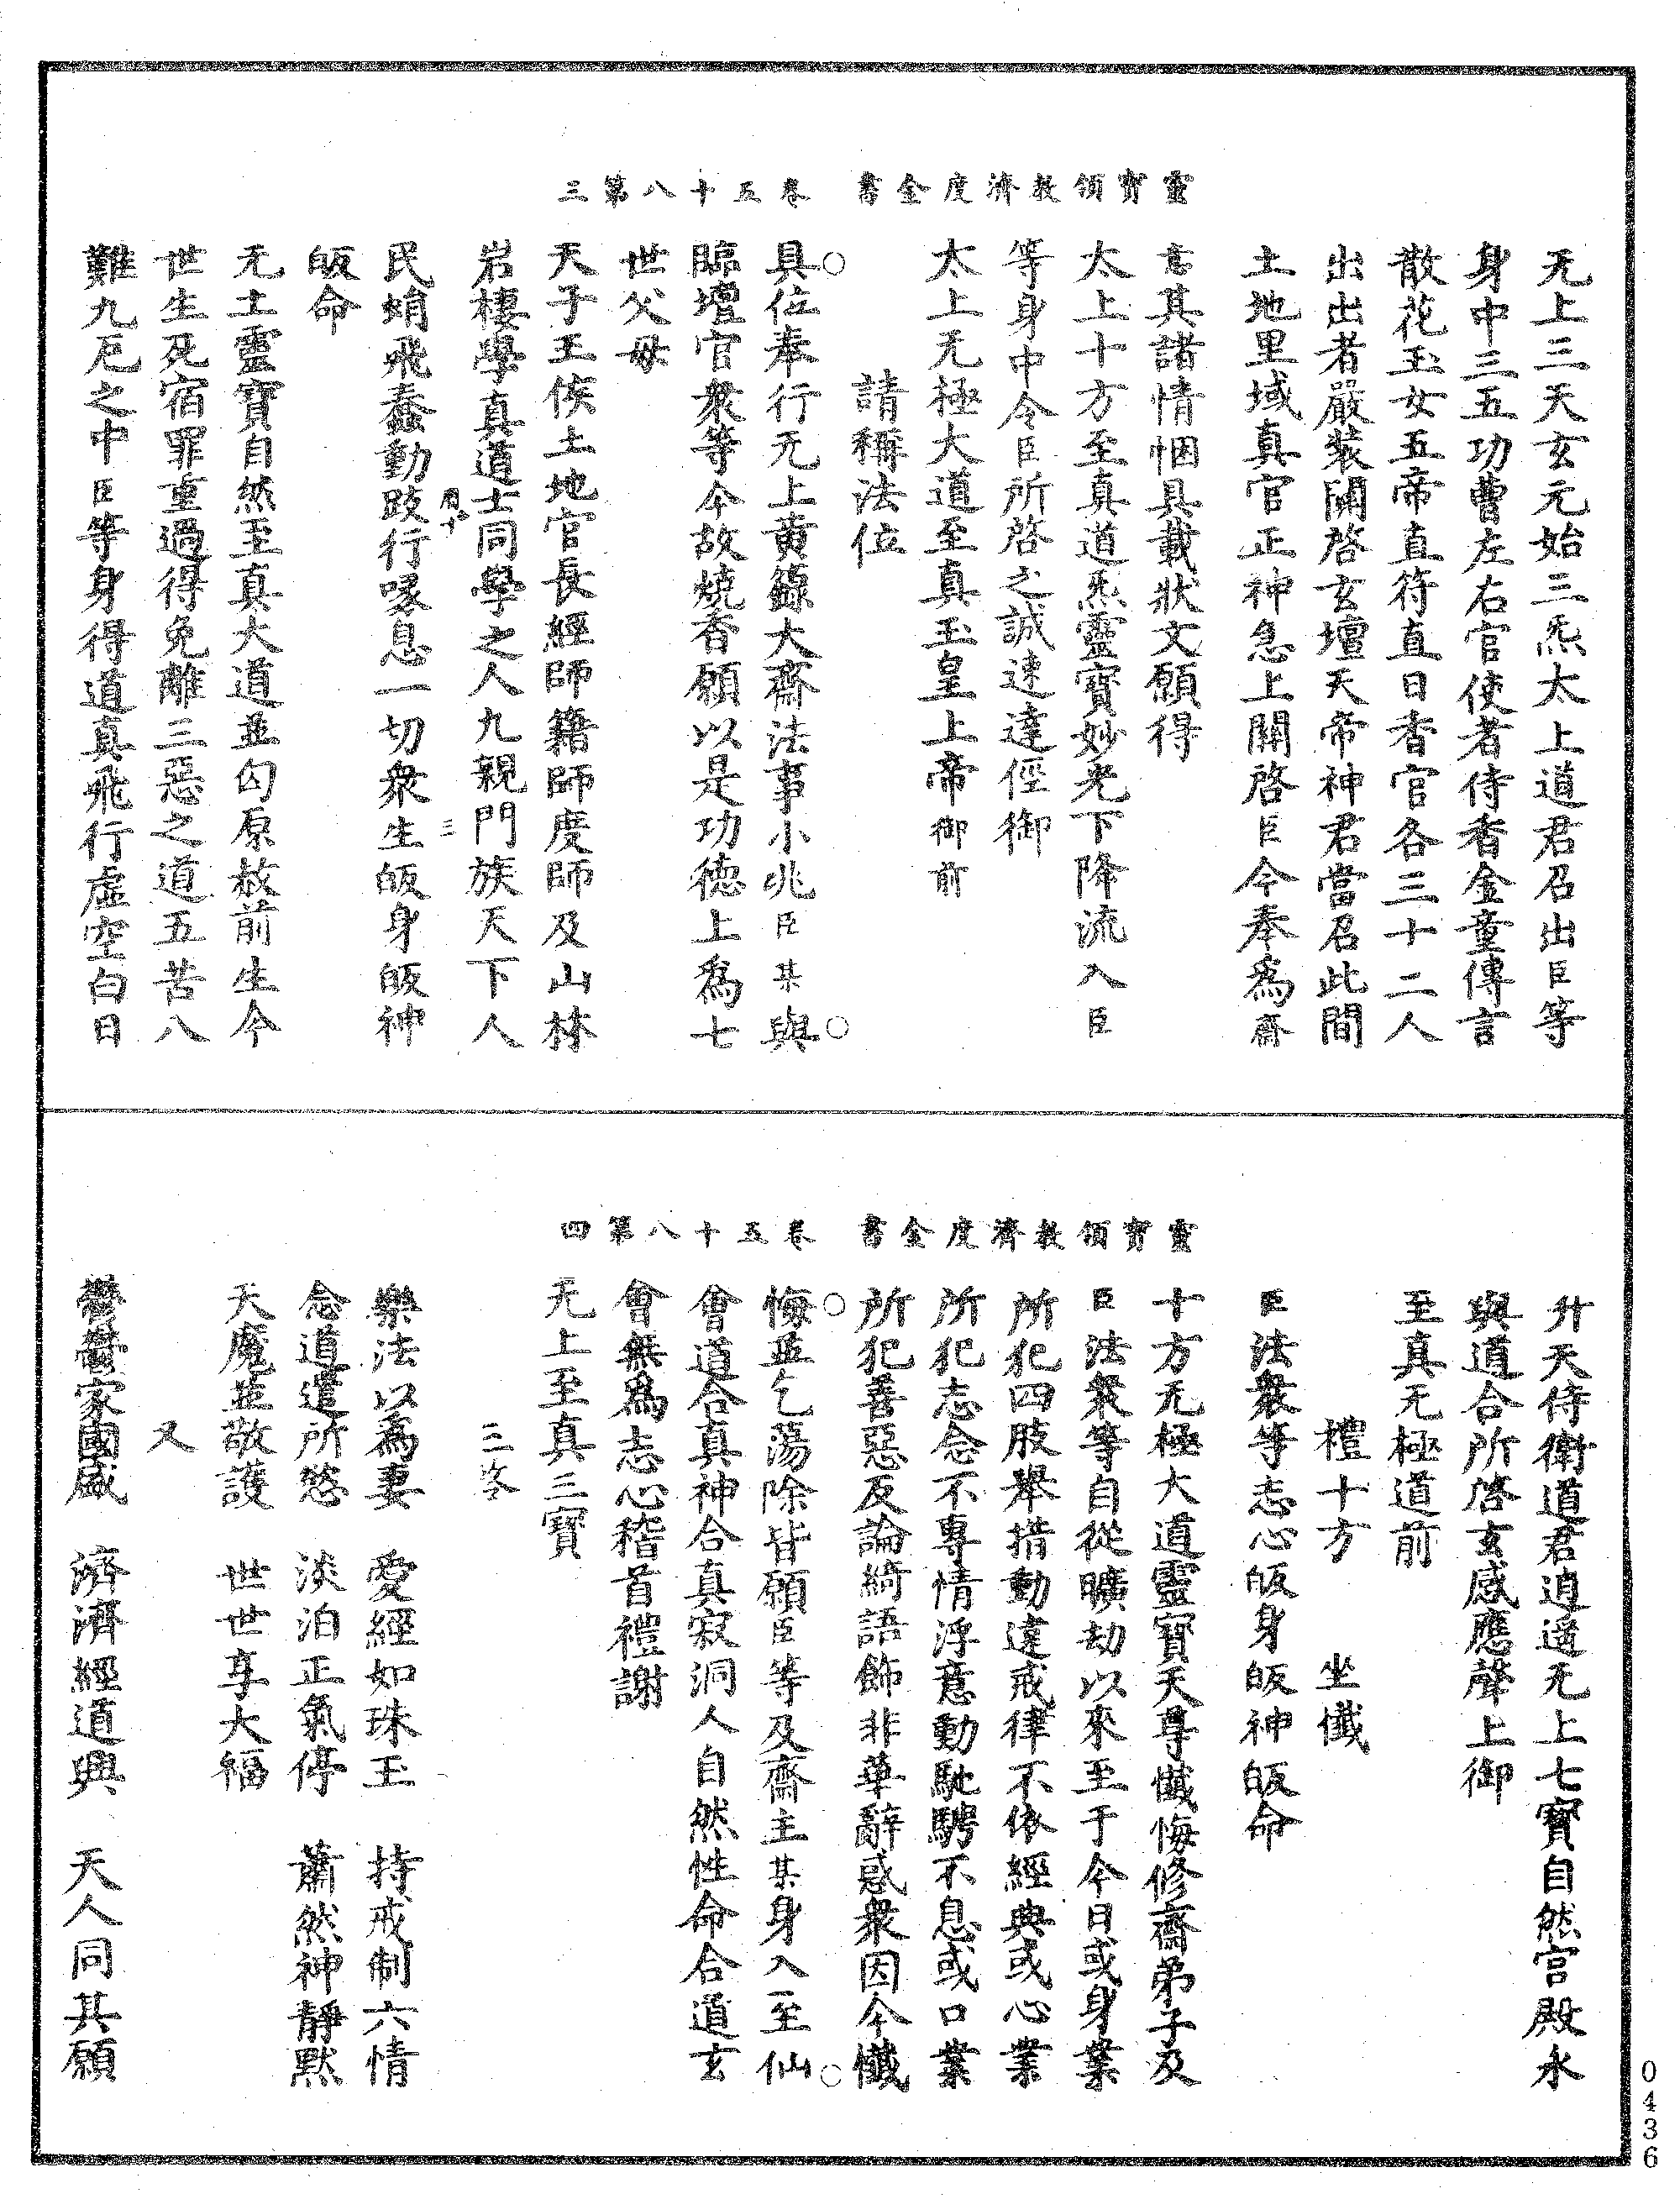 靈寶領教濟度金書 卷五十八第三
无上三天玄元始三炁太上道君召出臣等
身中三五功曹左右官使者侍香金童傳言
散花玉女五帝直符直日香官各三十二人
出出者嚴裝關啓玄壇天帝神君當召此間
土地里域真官正神急上關啓臣今奉爲齋
意其諸情悃具載狀文願得
太上十方至真道炁靈寶妙光下降流入臣
等身中令臣所啓之誠速達徑御
太上无極大道至真玉皇上帝御前
請稱法位
具位奉行无上黄籙大齋法事小兆臣某與
臨壇官衆等今故燒香願以是功德上爲七
世父母
天子王侯土地官長經師籍師度師及山林
岩棲學真道士同學之人九親門族天下人
民蜎飛蠢動跂行喙息一切衆生皈身皈神
皈命
无上靈寶自然至真大道並匄原赦前生今
世生死宿罪重過得免離三惡之道五苦八
難九厄之中臣等身得道真飛行虛空白日
靈寶領教濟度金書 卷五十八第四
升天侍衛道君逍遥无上七寶自然宫殿永
與道合所啓玄感應聲上御
至真无極道前
禮十方 坐懺
臣法衆等志心皈身皈神皈命
十方无極大道靈寶天尊懺悔修齋弟子及
臣法衆等自從曠劫以來至于今日或身業
所犯四肢舉措動違戒律不依經典或心業
所犯志念不專情浮意動馳騁不息或口業
所犯善惡反論綺語飾非華辭惑衆因今懺
悔並乞蕩除皆願臣等及齋主某身入至仙
會道合真神合真寂洞人自然性命合道玄
會無爲志心稽首禮謝
无上至真三寶
三塗
樂法以爲妻 愛經如珠玉 持戒制六情
念道遣所慾 淡泊正氣停 蕭然神靜黙
天魔並敬護 世世享大福
又
鬱鬱家國盛 濟濟經道興 天人同其願
0436